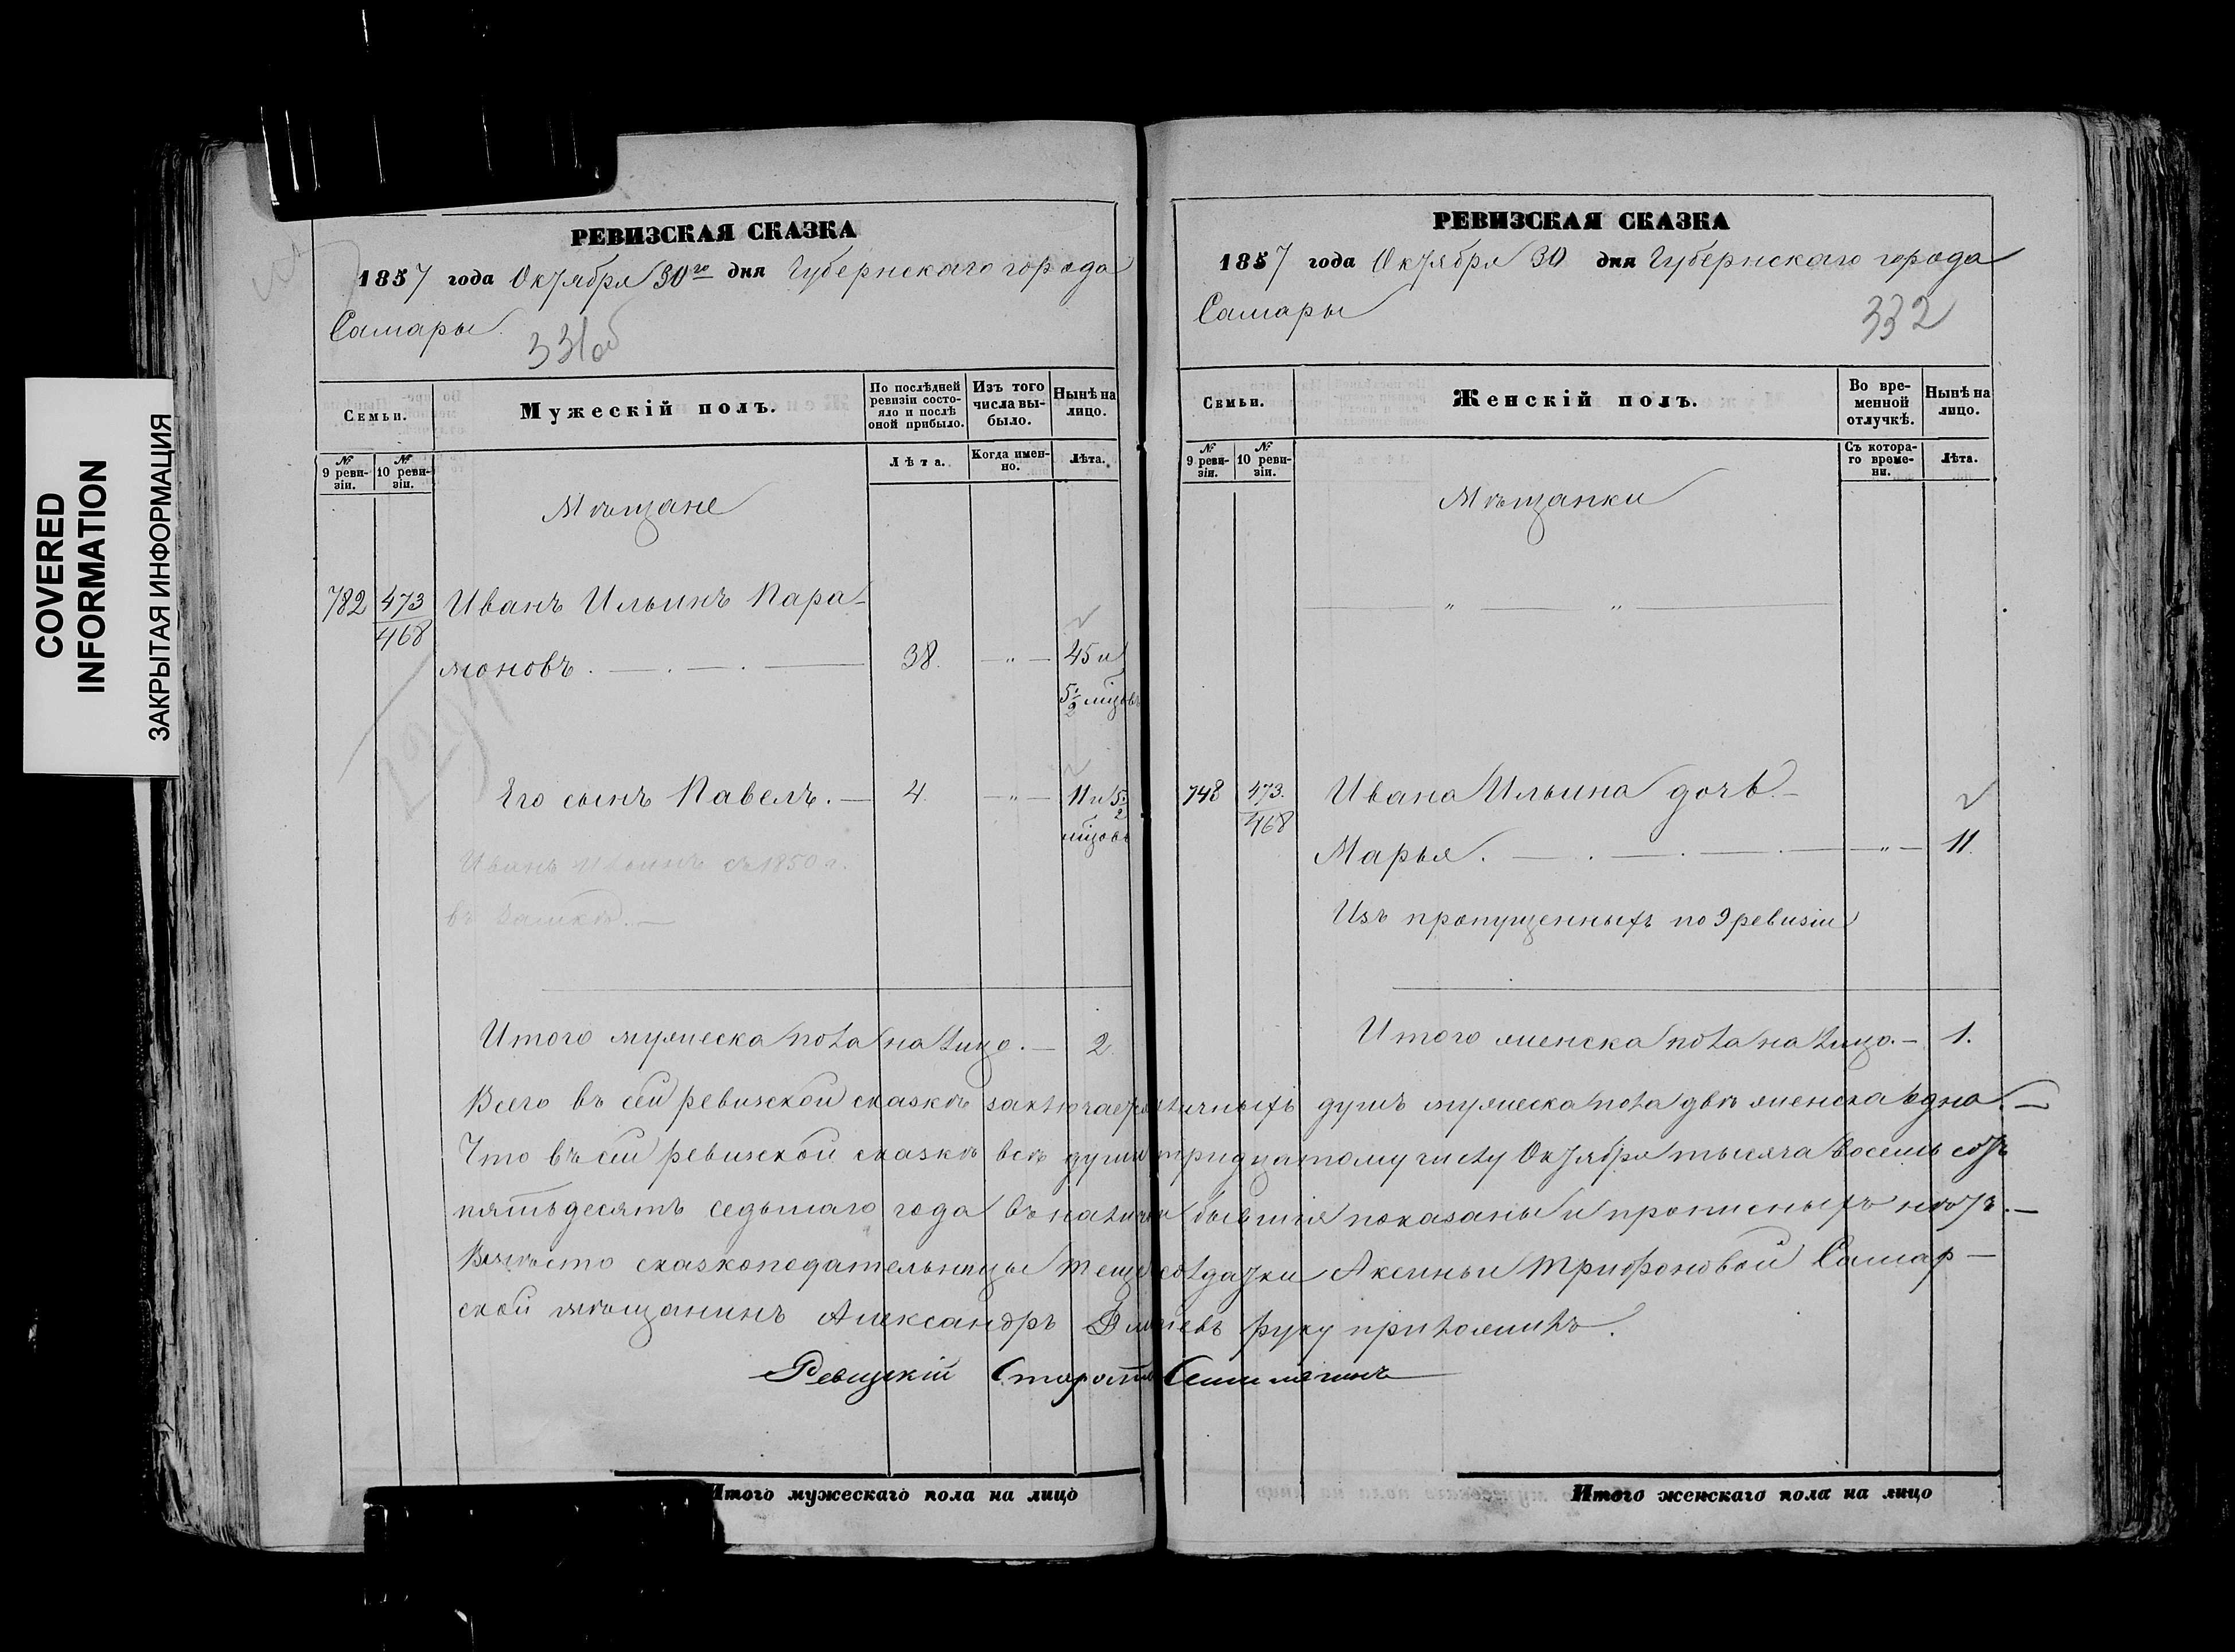 COVERED
INFORMATION
ЗАКРЫТАЯ ИНФОРМАЦИЯ
РЕВИЗСКАЯ СКАЗКА
1857 года Октября 30го дня Губернскаго города
Самары
331об
Семьи.
Мужескій полъ.
По послѣдней ревизіи состояло и послѣ оной прибыло.
Изъ того числа выбыло.
Нынѣ на лицо.
№ 9 ревизіи.
№ 10 ревизіи.
Лѣта.
Когда именно.
Лѣта.
Мѣщане
782 473 Иванъ Ильинъ Пара-
468
моновъ. 38. " 45 и
5 1/2 мѣсов
Его сынъ Павелъ. 4. " 11 и 5 1/2
мѣсовъ
Иванъ Ильинъ съ 1850 г.
въ
Итого мужеска пола на лицо. 2.
РЕВИЗСКАЯ СКАЗКА
1857 года Октября 30 дня Губернскаго города
Самары
332
Семьи.
Женскій полъ.
Во временной отлучкѣ.
Нынѣ на лицо.
№ 9 ревизіи.
№ 10 ревизіи.
Съ котораго времени.
Лѣта.
Мѣщанки
" "
748 473. Ивана Ильина дочь
468
Марья. " 11.
Изъ пропущенныхъ по 9 ревизіи
Итого женска пола на лицо. 1.
Всего въ сей ревизской сказкѣ заключается наличныхъ душъ мужеска пола двѣ женска одна.
Что въ сей ревизской сказкѣ всѣ души тридцатому числу Октября тысяча восемь сотъ
пятьдесятъ седьмаго года въ наличіи бывшія показаны и прописныхъ нѣтъ.
Вмѣсто сказкоподательницы тещи солдатки Аксиньи Трифоновой Самар-
ской мѣщанинъ Александръ руку приложилъ.
Ревизскій Староста
Итого мужескаго пола на лицо
Итого женскаго пола на лицо